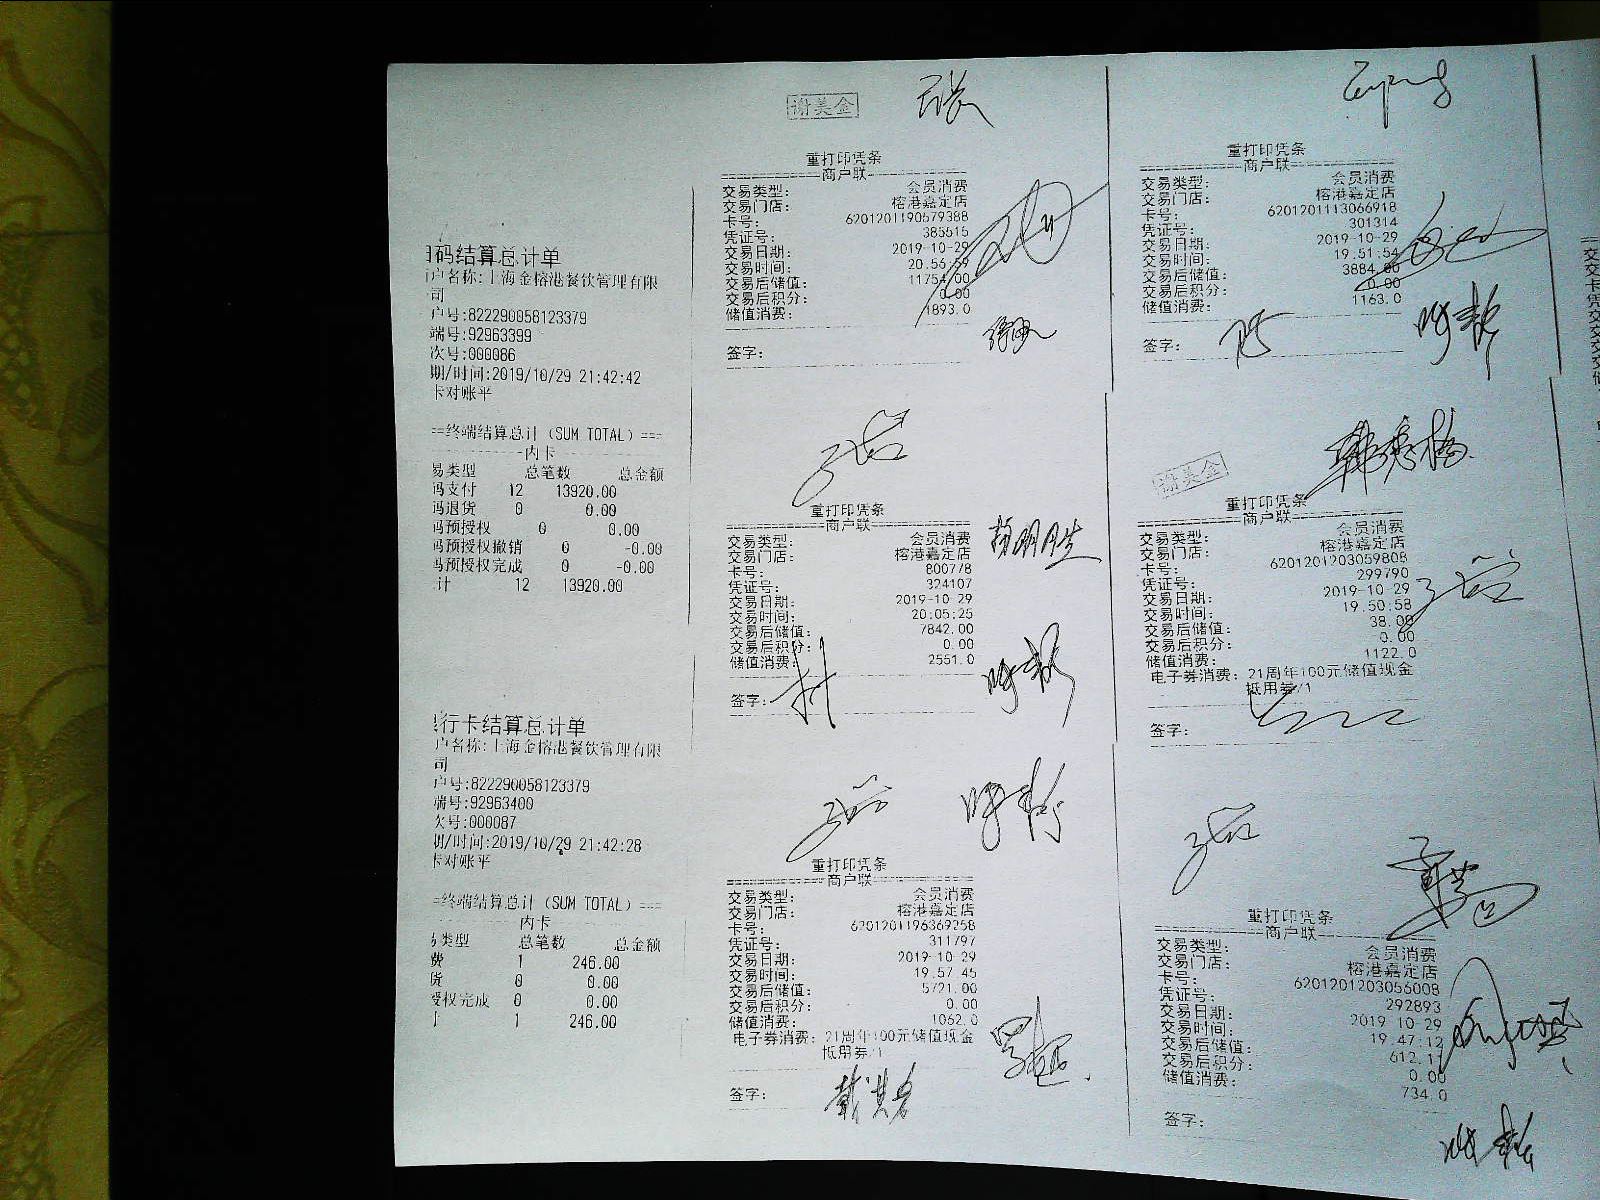 扫码结算总计单
户名称:上海金榕港餐饮管理有限
司
户号:822290058123379
端号:92963399
次号:000086
期/时间:2019/10/29 21:42:42
卡对账平
==终端结算总计(SUM TOTAL)===
内卡
易类型 总笔数 总金额
码支付 12 13920.00
码退货 0 0.00
码预授权 0 0.00
码预授权撤销 0 -0.00
码预授权完成 0 -0.00
计 12 13920.00
行卡结算总计单
户名称:上海金榕港餐饮管理有限
司
户号:822290058123379
端号:92963400
次号:000087
期/时间:2019/10/29 21:42:28
卡对账平
=终端结算总计(SUM TOTAL)===
内卡
易类型 总笔数 总金额
费 1 246.00
货 0 0.00
授权完成 0 0.00
计 1 246.00
谢美金
重打印凭条
商户联
交易类型: 会员消费
交易门店: 榕港嘉定店
卡号: 6201201190579388
凭证号: 385515
交易日期: 2019-10-29
交易时间: 20:56:59
交易后储值: 11754.00
交易后积分: 0.00
储值消费: 1893.0
签字:
重打印凭条
商户联
交易类型: 会员消费
交易门店: 榕港嘉定店
卡号: 800778
凭证号: 324107
交易日期: 2019-10-29
交易时间: 20:05:25
交易后储值: 7842.00
交易后积分: 0.00
储值消费: 2551.0
签字:
重打印凭条
商户联
交易类型: 会员消费
交易门店: 榕港嘉定店
卡号: 6201201196369258
凭证号: 311797
交易日期: 2019-10-29
交易时间: 19:57:45
交易后储值: 5721.00
交易后积分: 0.00
储值消费: 1062.0
电子券消费: 21周年100元储值现金
抵用券/1
签字:
重打印凭条
商户联
交易类型: 会员消费
交易门店: 榕港嘉定店
卡号: 6201201113066918
凭证号: 301314
交易日期: 2019-10-29
交易时间: 19:51:54
交易后储值: 3884.00
交易后积分: 0.00
储值消费: 1163.0
签字:
谢美金
重打印凭条
商户联
交易类型: 会员消费
交易门店: 榕港嘉定店
卡号: 6201201203059808
凭证号: 299790
交易日期: 2019-10-29
交易时间: 19:50:58
交易后储值: 38.00
交易后积分: 0.00
储值消费: 1122.0
电子券消费: 21周年100元储值现金
抵用券/1
签字:
重打印凭条
商户联
交易类型: 会员消费
交易门店: 榕港嘉定店
卡号: 6201201203056008
凭证号: 292893
交易日期: 2019-10-29
交易时间: 19:47:12
交易后储值: 612.11
交易后积分: 0.00
储值消费: 734.0
签字: